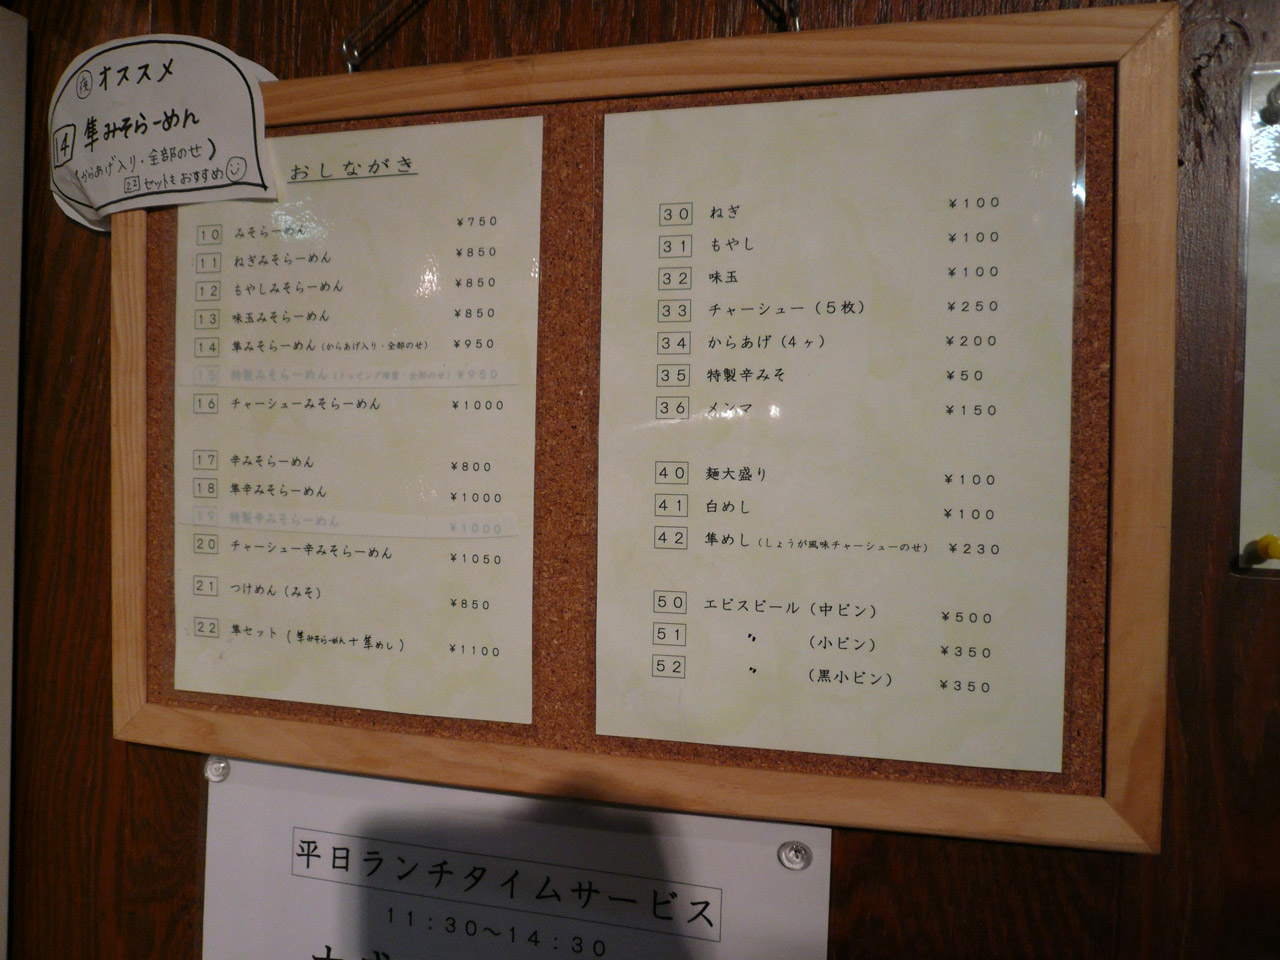 夜 オススメ
14 隼みそらーめん
(からあげ入り・全部のせ)
22 セットもおすすめ
おしながき
10 みそらーめん ¥750
11 ねぎみそらーめん ¥850
12 もやしみそらーめん ¥850
13 味玉みそらーめん ¥850
14 隼みそらーめん(からあげ入り・全部のせ) ¥950
15 特製みそらーめん ¥950
16 チャーシューみそらーめん ¥1000
17 辛みそらーめん ¥800
18 隼辛みそらーめん ¥1000
19 特製辛みそらーめん ¥1000
20 チャーシュー辛みそらーめん ¥1050
21 つけめん(みそ) ¥850
22 隼セット(隼みそらーめん+隼めし) ¥1100
30 ねぎ ¥100
31 もやし ¥100
32 味玉 ¥100
33 チャーシュー(5枚) ¥250
34 からあげ(4ヶ) ¥200
35 特製辛みそ ¥50
36 メンマ ¥150
40 麺大盛り ¥100
41 白めし ¥100
42 隼めし(しょうが風味チャーシューのせ) ¥230
50 エビスビール(中ビン) ¥500
51 〃 (小ビン) ¥350
52 〃 (黒小ビン) ¥350
平日ランチタイムサービス
11:30〜14:30